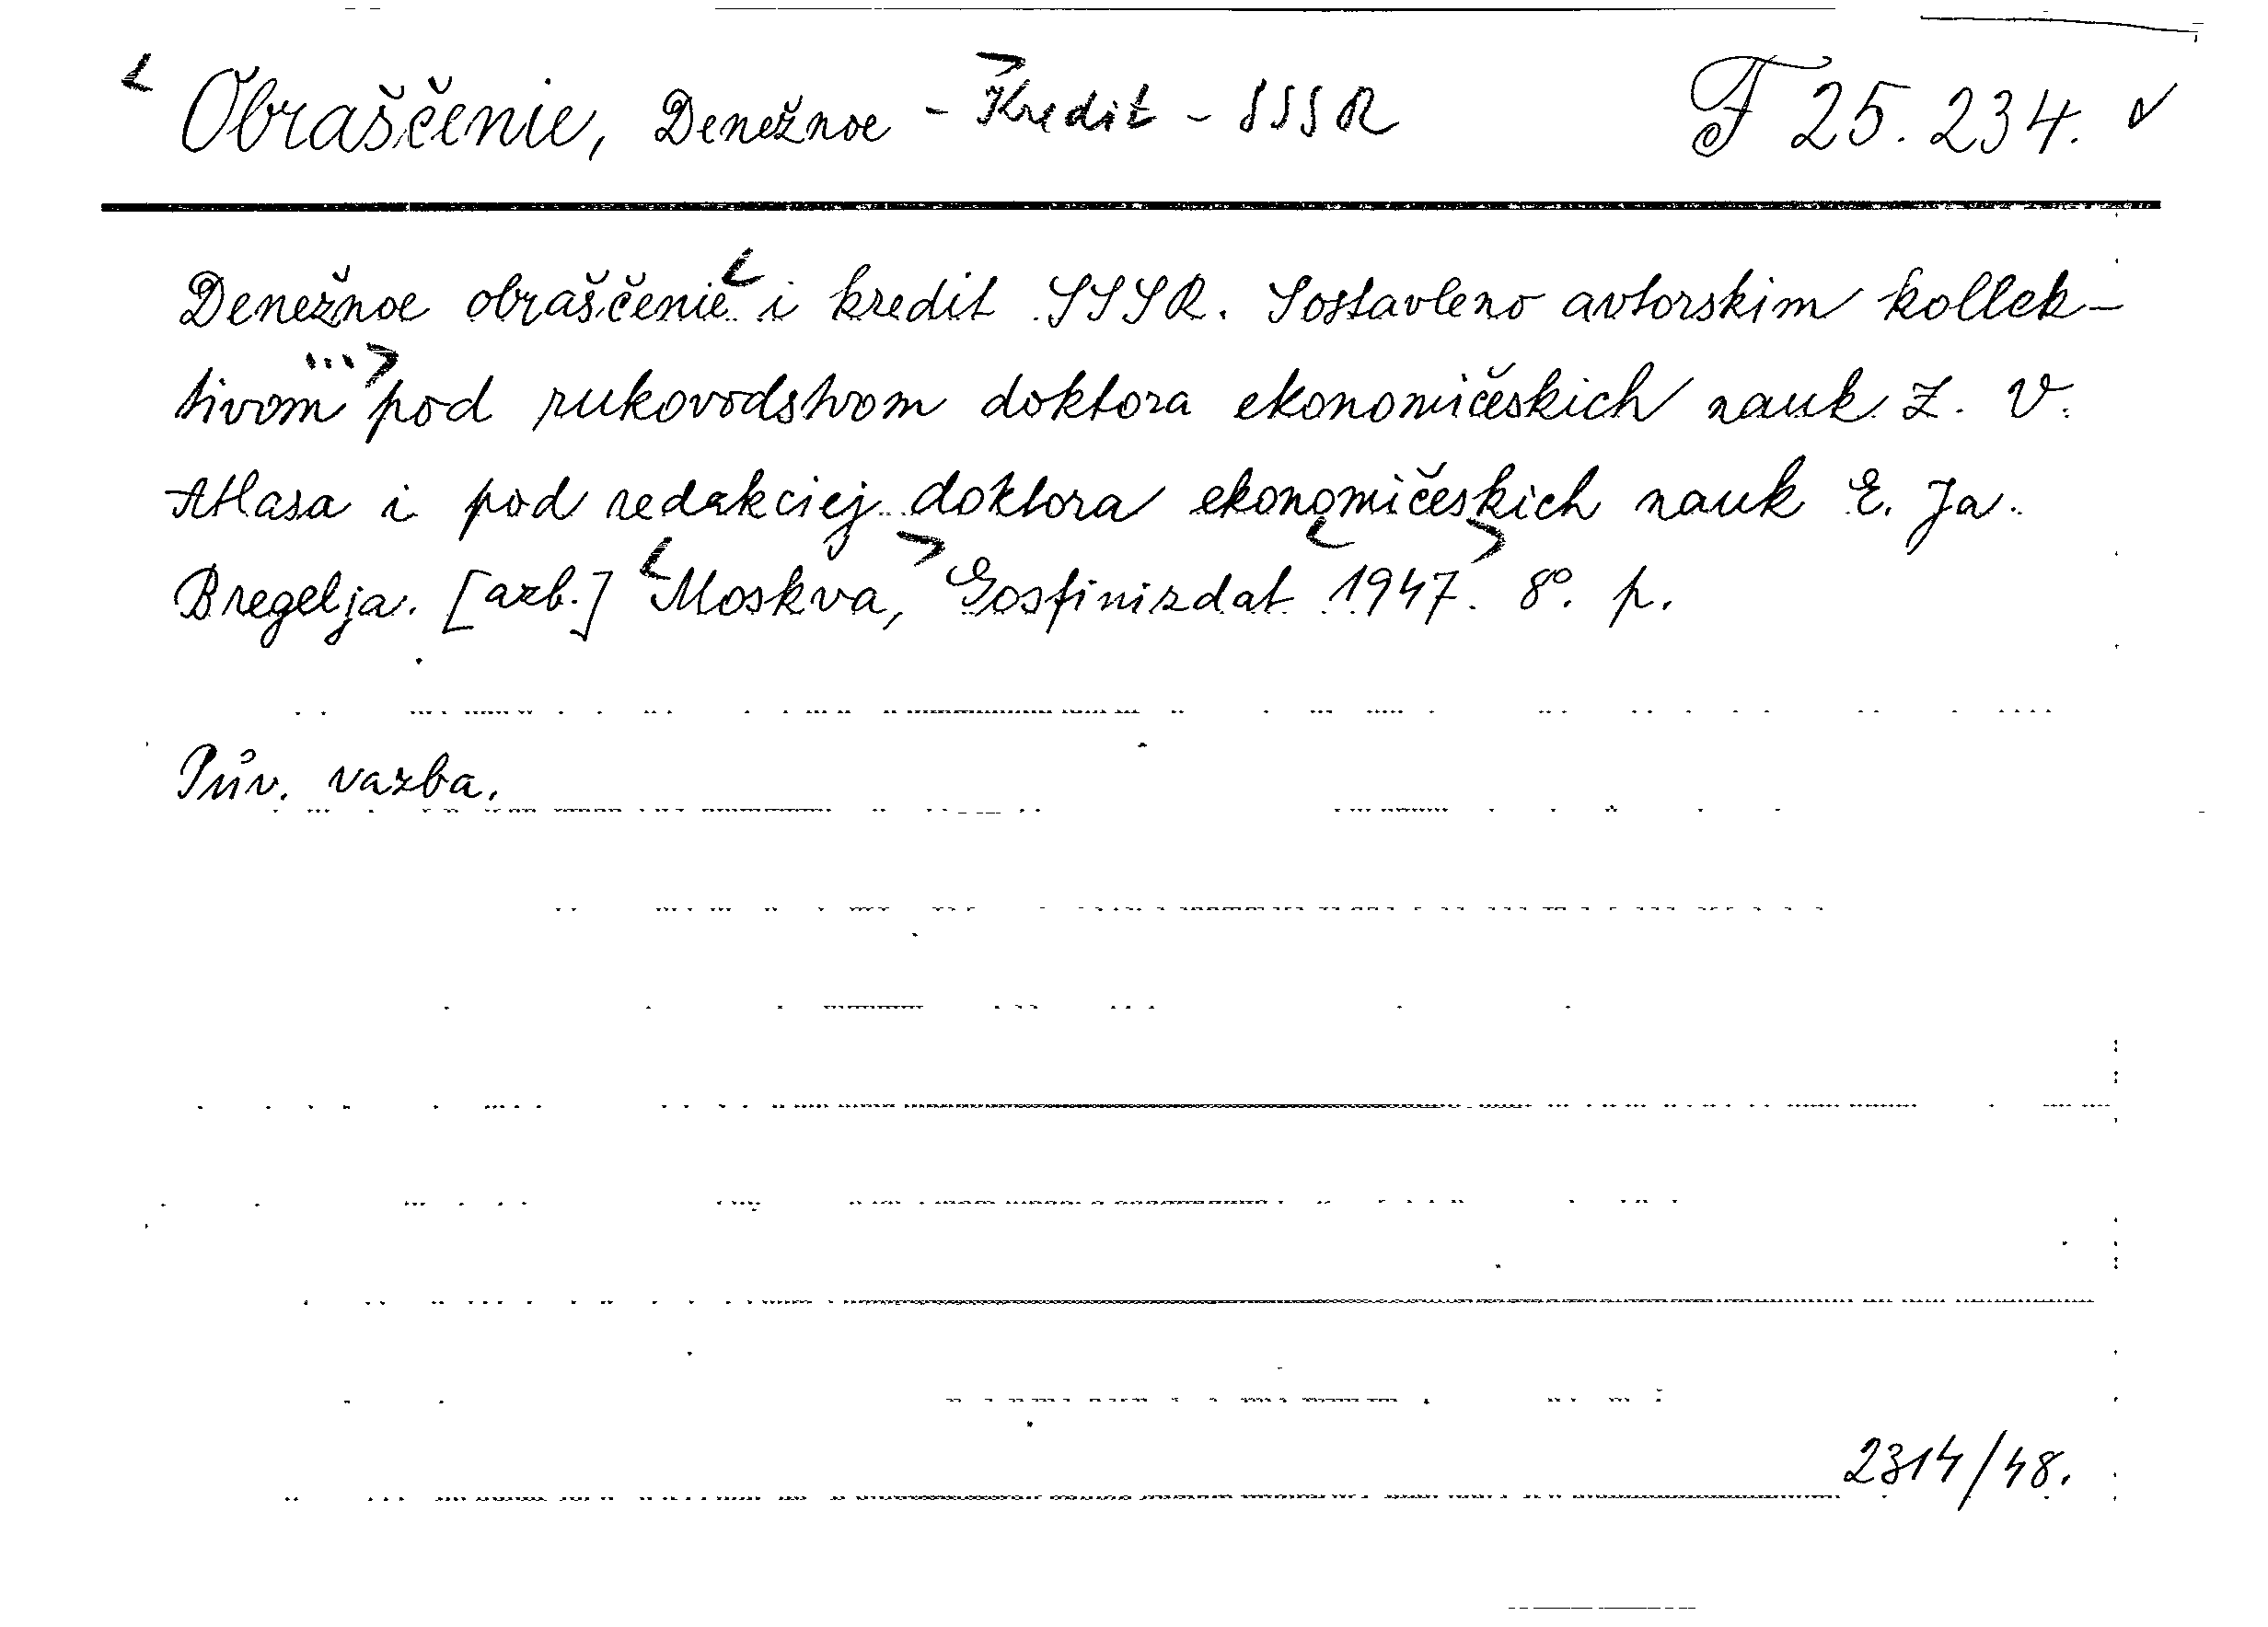 Obraščenie, Denežnoe - Kredit - SSSR F 25.234.
Denežnoe obraščenie i kredit SSSR. Sostavleno avtorskim kollek-
tivom pod rukovodstvom doktora ekonomičeskich nauk Z. V.
Atlasa i pod redakciej doktora ekonomičeskich nauk E. Ja.
Bregelja. [azb.] Moskva, Gosfinizdat 1947. 8°. p.
Pův. vazba.
2314/48.